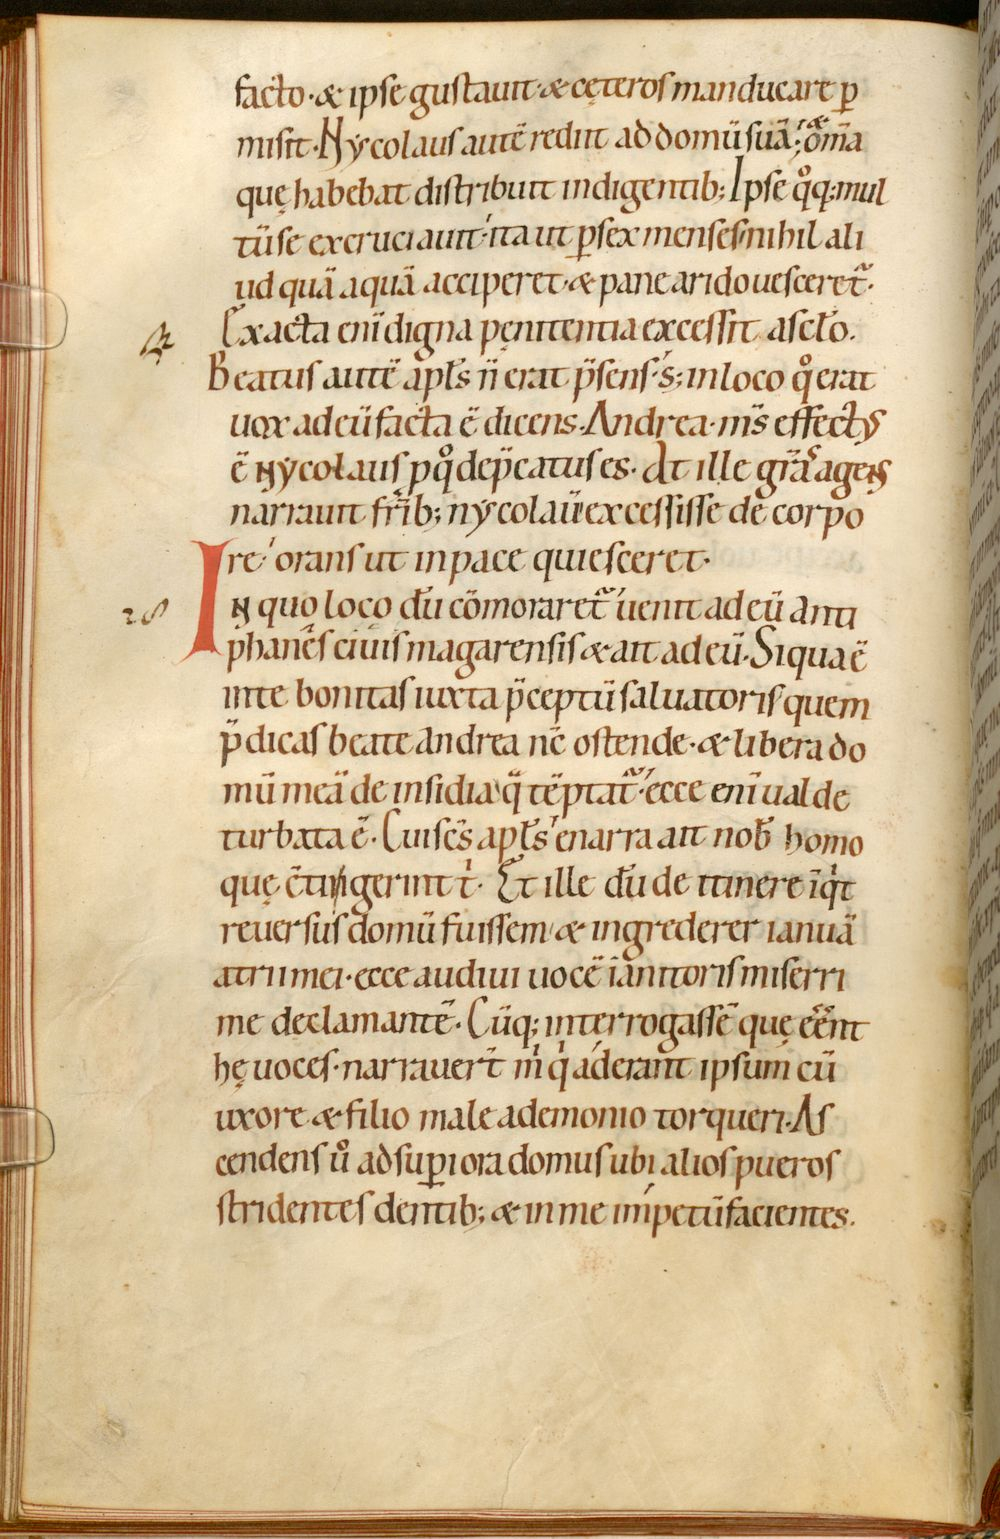 facto · & ipse gustauit · & cęteros manducare ꝑ
misit · Nycolaus autē rediit ad domū suā ; & om̄a
quę habebat distribuit indigentib; Ipse qͦq; mul
tū se excruciauit · ita ut ꝑ sex menses nihil ali
ud quā aquā acciperet · & pane arido uesceret᷑ ·
Exacta enī digna penitentia excessit a sclo .
Beatus autē apls n̄ erat p̄sens · s; in loco qͦ erat
uox ad eū facta ē dicens · Andrea · ms̄ effectꝰ
ē Nycolaus p qͦ dep̄catus es · At ille gr̄as agens
narrauit fr̄ib; nycolaū excessisse de corpo
re · orans ut in pace quiesceret ·
28 In quo loco dū cōmoraret᷑ uenit ad eū Anti
phanēs ciuis magarensis & ait ad eū · Si qua ē
in te bonitas iuxta p̄ceptū saluatoris quem
p̄dicas beate Andrea nc̄ ostende · & libera do
mū meā de insidia q̄ tēptat᷑ · ecce enī ualde
turbata ē · Cui sc̄s apls enarra ait nob̄ homo
quę c̄tigerint t̄ · Et ille dū de itinere īqͥt
reuersus domū fuissem & ingrederer ianuā
atrii mei · ecce audiui uocē ianitoris miserri
me declamantē · Cūq; interrogassē quę eēnt
hę uoces · narrauer̄t m̄ qͥ aderant ipsum cū
uxore & filio male a demonio torqueri · As
cendens ū ad suꝑiora domus ubi alios pueros
stridentes dentib; & in me impetū facientes .